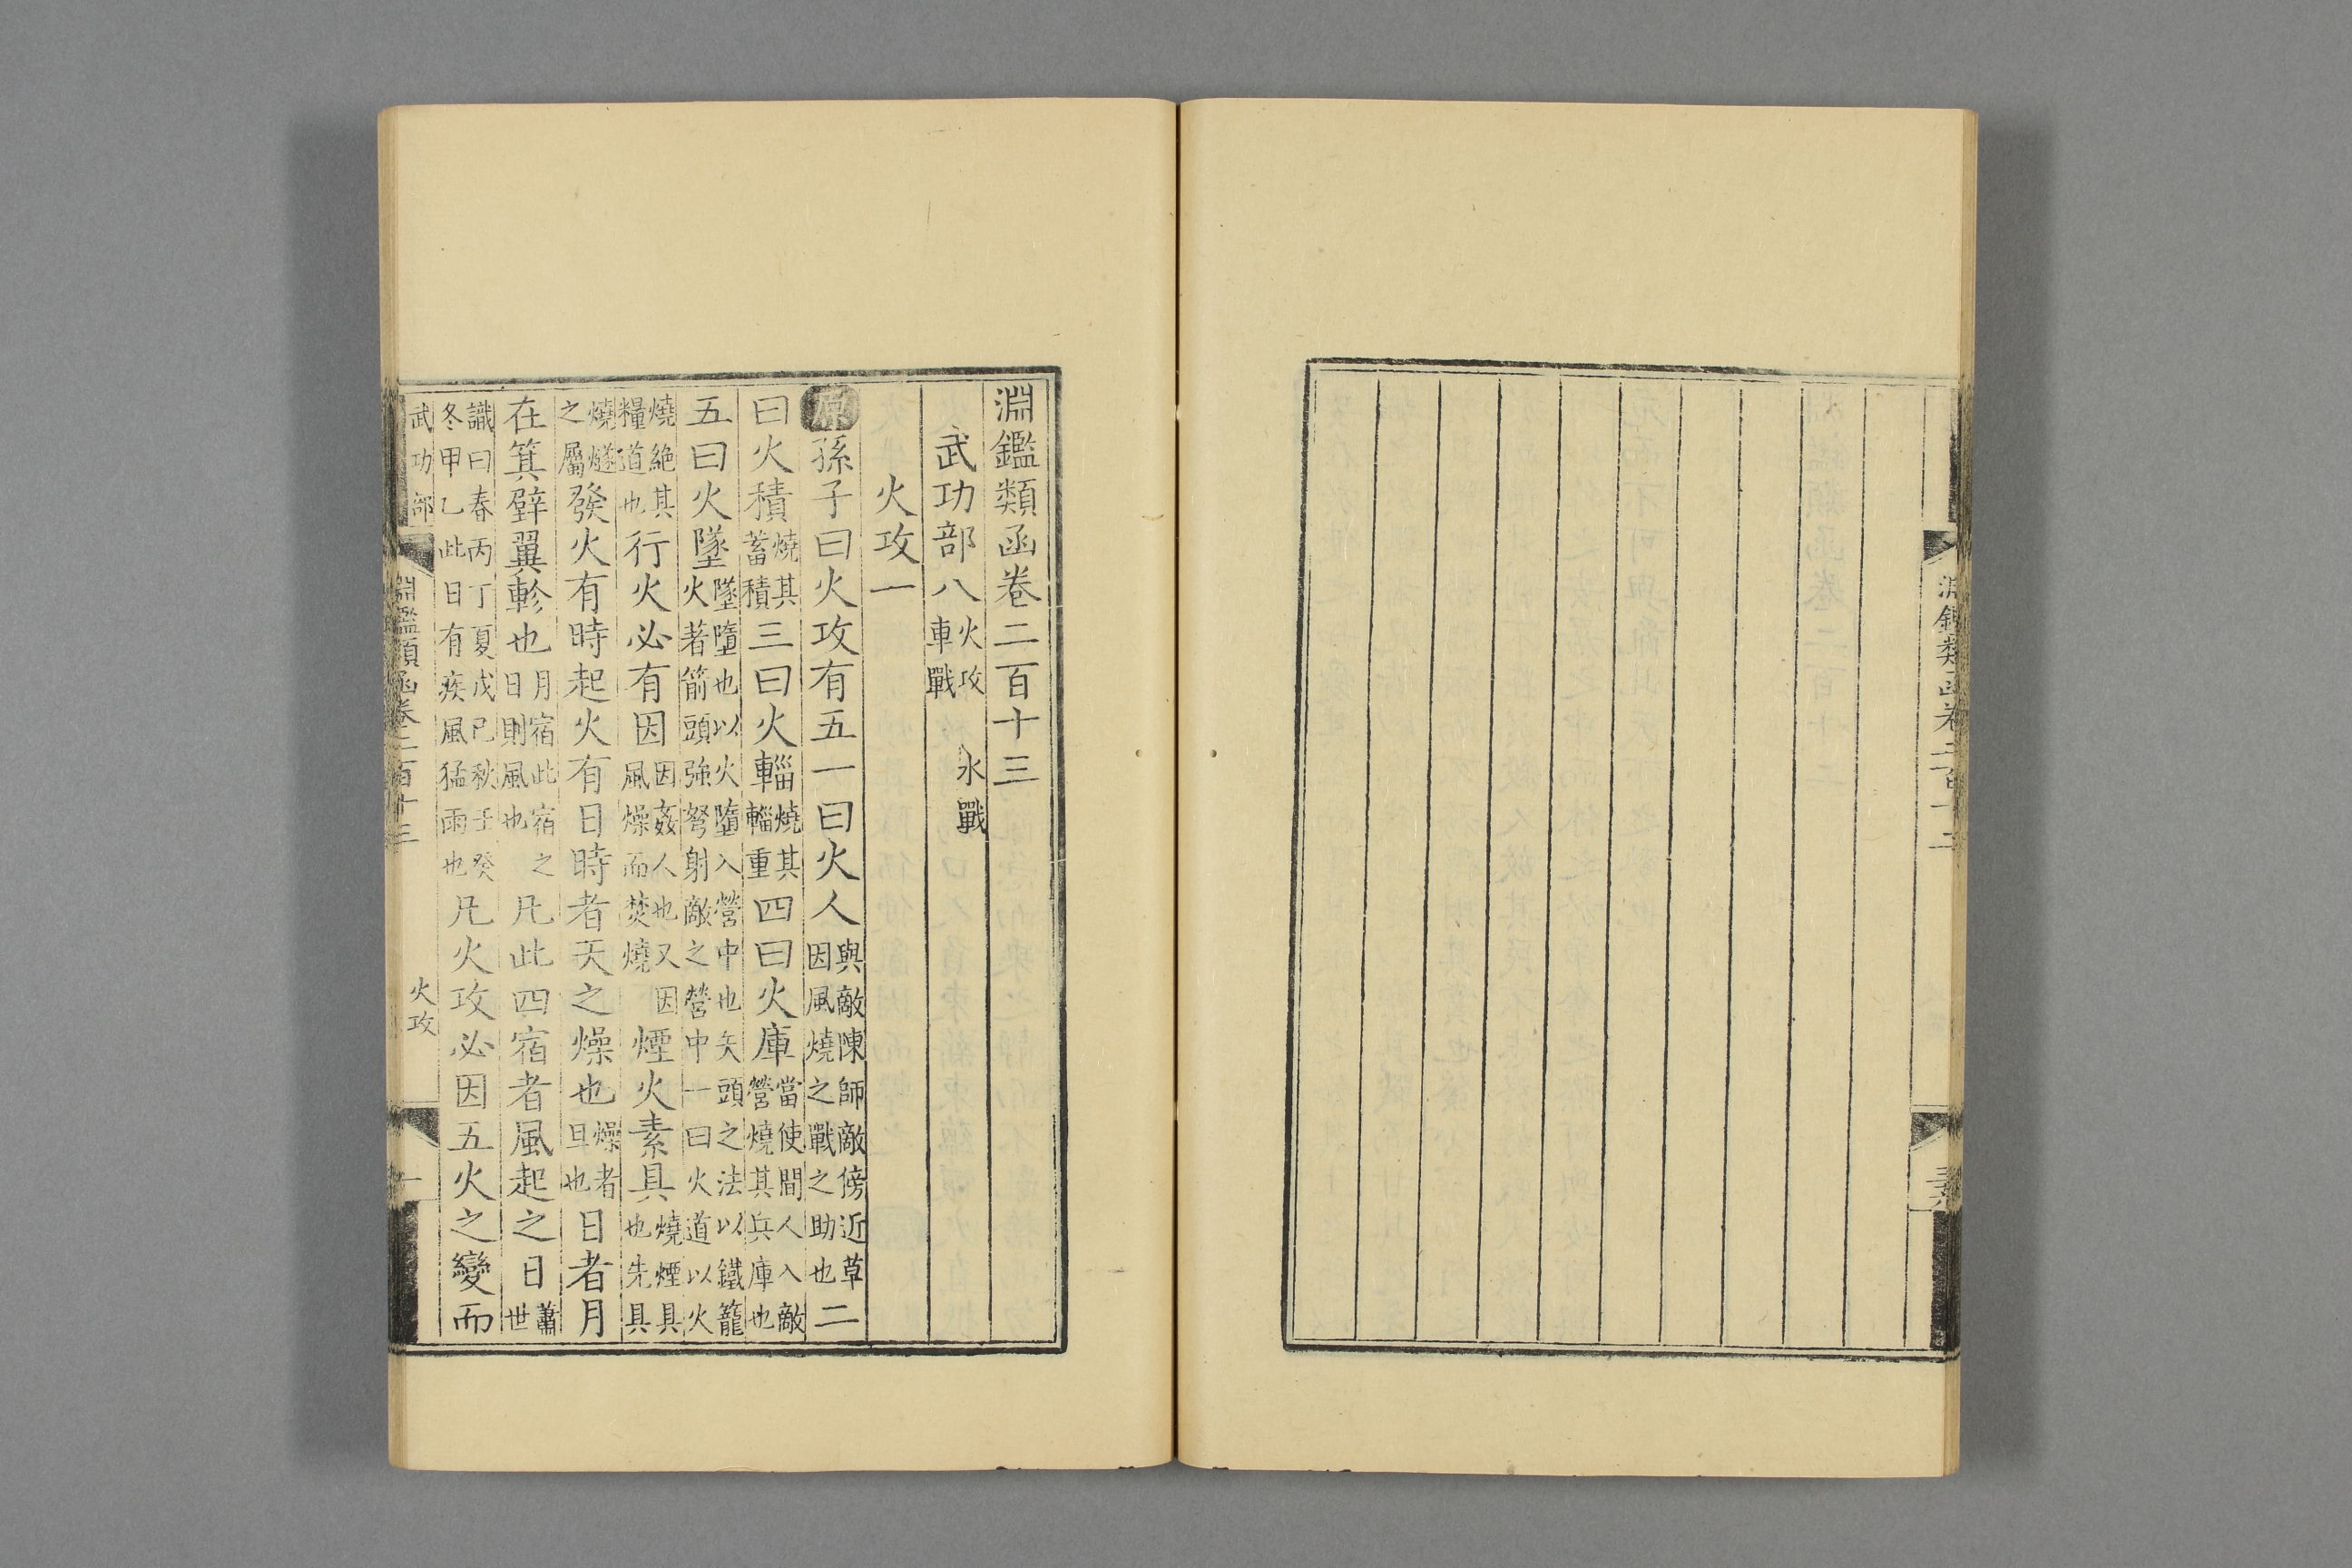 淵鑑類函卷二百十三
武功部八 火攻 水戰 車戰
火攻一
原 孫子曰火攻有五一曰火人 與敵陳師敵傍近草因風燒之戰之助也 二
曰火積 燒其蓄積 三曰火輜 燒其輜重 四曰火庫 當使間人入敵營燒其兵庫也
五曰火墜 墜墮也以火墮入營中也矢頭之法以鐵籠火著箭頭強弩射敵之營中一曰火道以火
燒絶其糧道也 行火必有因 因姦人也又因風燥而焚燒 煙火素具 燒煙具也先具
燒燧之屬 發火有時起火有日時者天之燥也 燥者旦也 日者月
在箕壁翼軫也 月宿此宿之日則風也 凡此四宿者風起之日 蕭世
識曰春丙丁夏戊己秋壬癸冬甲乙此日有疾風猛雨也 凡火攻必因五火之變而
武功部 淵鑑類函卷二百十三 火攻 一